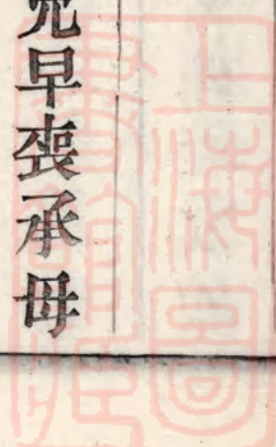 早喪承母
上海圖
書館藏